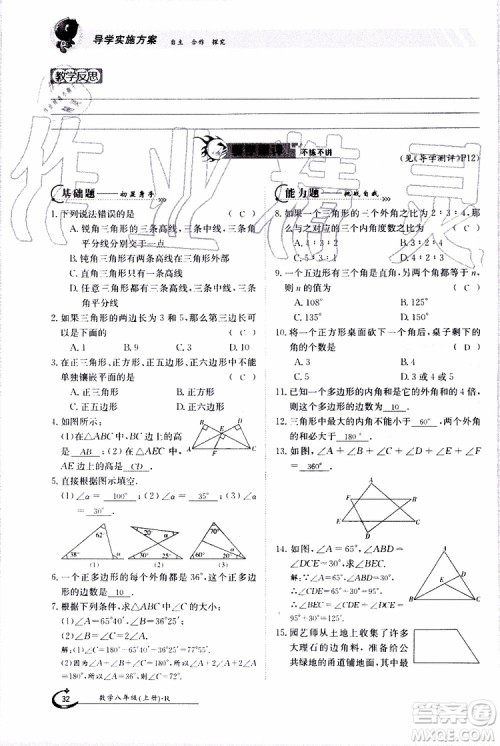 导学实施方案 自主 合作 探究
教学反思
不练不讲
(见《导学测评》P12)
基础题——初显身手
1. 下列说法错误的是 ( C )
A. 锐角三角形的三条高线、三条中线、三条角
平分线分别交于一点
B. 钝角三角形有两条高线在三角形外部
C. 直角三角形只有一条高线
D. 任意三角形都有三条高线、三条中线、三条
角平分线
2. 如果三角形的两边长为3和5,那么第三边长
可以是 ( C )
A. 1 B. 9 C. 3 D. 10
3. 在正三角形、正方形、正五边形、正六边形中不能
单独镶嵌平面的是 ( C )
A. 正三角形 B. 正方形
C. 正五边形 D. 正六边形
4. 如图所示:
(1)在△ABC中,BC边上的高
是 AB ;(2)在△AEC中,
AE边上的高是 CD
5. 直接根据图示填空.
(1)∠α= 100° (2)∠α= 35° (3)∠α= 30°
6. 一个正多边形的每个外角都等于36°,则这个正多
边形的边数为 10 .
7. 根据下列条件,求△ABC中∠C的度数:
(1)∠A=38°,∠B=62°;
解:(1)∠C=80°.
(2)∠B=∠A=36°.
解:(2)∠C=108°.
能力题——挑战自我
8. 如果一个三角形的三个外角之比为2:3:4,那
么与之对应的三个内角度数之比为 ( C )
A. 4:3:2 B. 3:2:4
C. 5:3:1 D. 3:1:5
9. 一个五边形有三个角是直角,另两个角都等于n,
则n的值为 ( C )
A. 108° B. 125°
C. 135° D. 150°
10. 将一个正方形桌面砍下一个角后,桌子剩下的
角的个数是 ( D )
A. 3个 B. 4个
C. 5个 D. 3个或4个或5个
11. 已知一个多边形的内角和是它的外角和的4倍,那
么这个多边形的边数为 10 .
12. 三角形三个内角中,最大的角不能小于 60° ,两个外角
的和必大于 180° .
13. 如图,∠A+∠B+∠C+∠D+∠E+∠F=
360° .
14. 如图,∠A=65°,∠ABD=
∠DCE=30°,且CE平分
∠ACB,求∠BEC.
解:∵∠A=65°,∠ABD=30°,
∴∠BDC=∠A+∠ABD=65°
+30°=95°,
∴∠BEC=∠EDC+∠DCE=
95°+30°=125°.
15. 园艺师从土地上收集了许多
大理石的边角余料,准备给公
共绿地的甬道铺地面,有一块
32 数学八年级(上册)·R